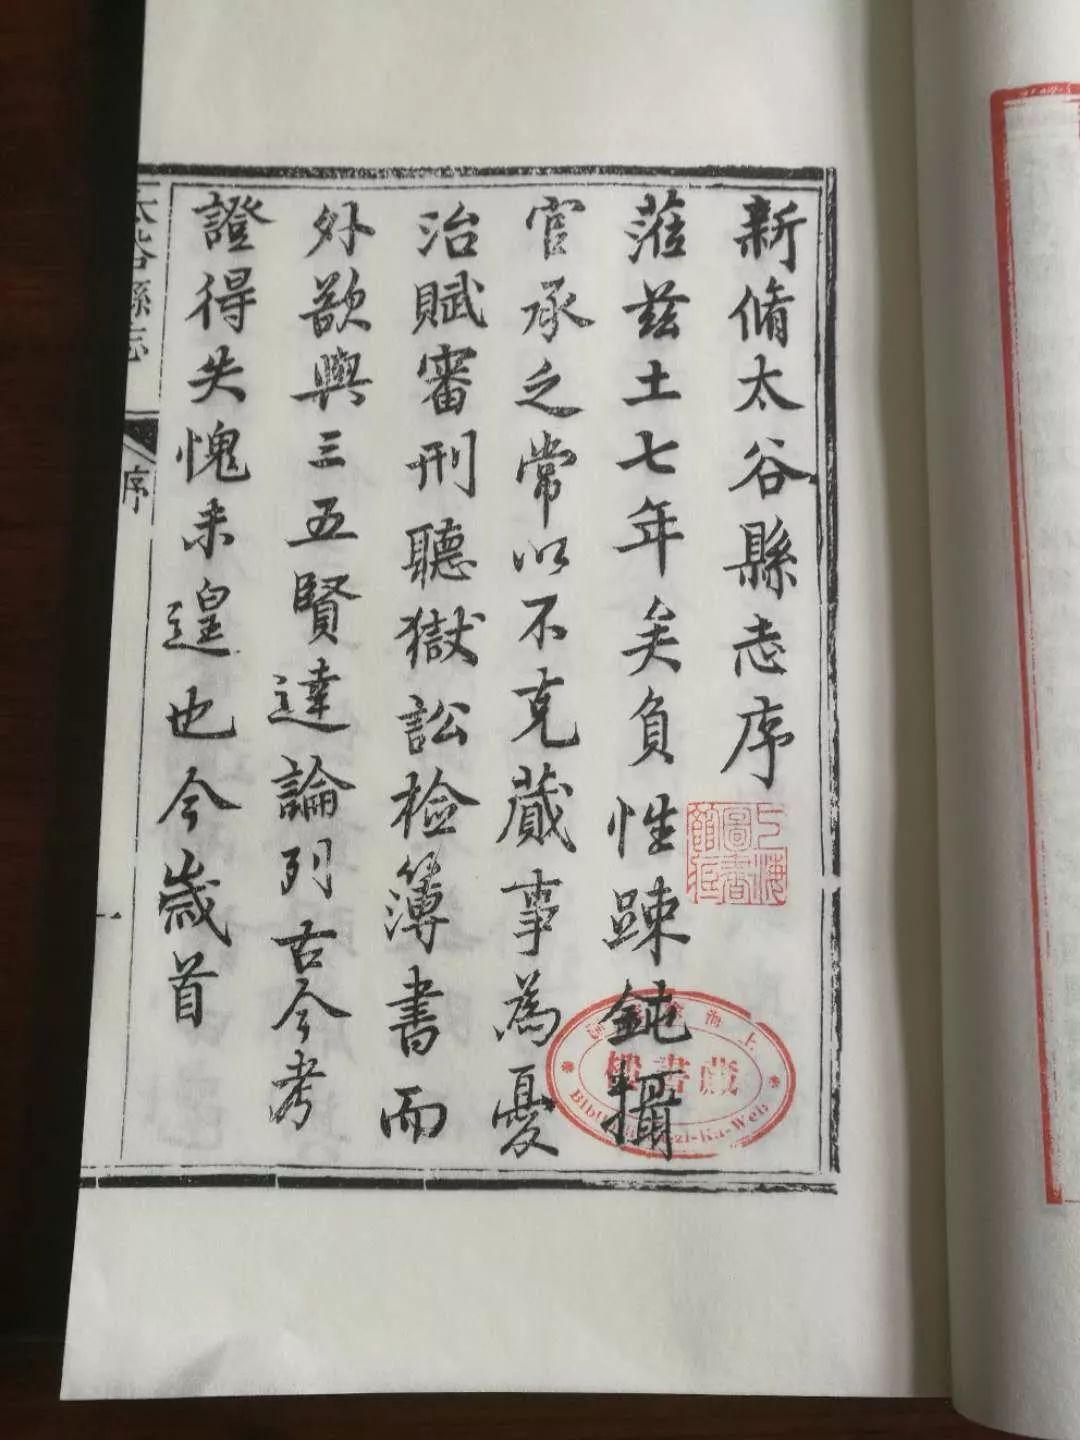 新脩太谷縣志序
蒞茲土七年矣負性疎鈍攝
官承之常以不克蕆事為憂
治賦審刑聽獄訟檢簿書而
外欲與三五賢達論列古今考
證得失愧未遑也今歲首
太谷縣志
序
上海
圖書
館藏
上海
藏書樓
Bibl
zi-Ka-Wei